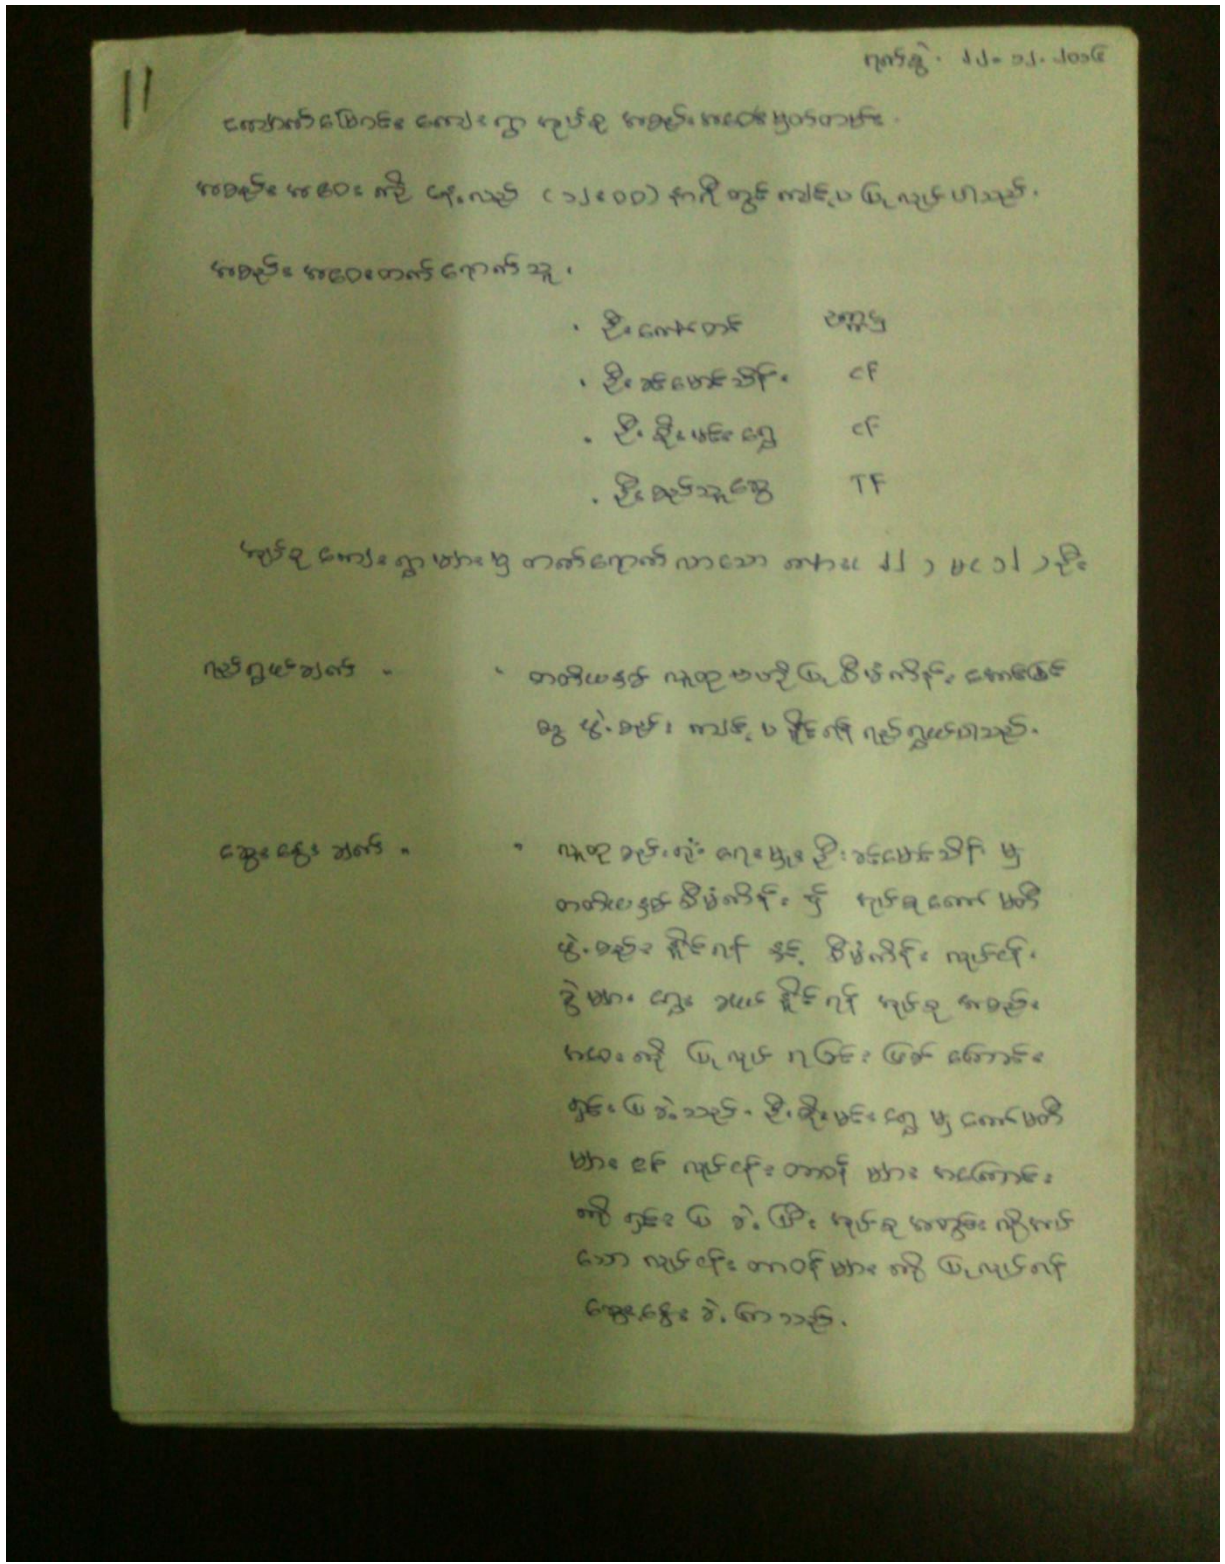 11
ရက်စွဲ။ ၂၂-၁၂-၂၀၁၄
ကျေးရွာအုပ်စု အစည်းအဝေးမှတ်တမ်း။
အစည်းအဝေးကို နေ့လည် (၁၂း၀၀) နာရီတွင် ကျင်းပပြုလုပ်ပါသည်။
အစည်းအဝေးတက်ရောက်သူ။
ဥက္ကဋ္ဌ
ဦးခင်မောင်သိန်း CF
ဦးစိုးမင်းရွှေ CF
ဦးစည်သူဆွေ TF
အုပ်စုကျေးရွာများမှ တက်ရောက်လာသော
ရည်ရွယ်ချက်။ တတိယနှစ် လူထုဗဟိုပြုစီမံကိန်း ကော်မတီ
ဖွဲ့စည်း ကျင်းပနိုင်ရန် ရည်ရွယ်ပါသည်။
ဆွေးနွေးချက်။ လူထုစည်းရုံးရေးမှူး ဦးခင်မောင်သိန်းမှ
တတိယနှစ်စီမံကိန်း၌ အုပ်စုကော်မတီ
ဖွဲ့စည်းနိုင်ရန် နှင့် စီမံကိန်းလုပ်ငန်း
ခွဲများ ရွေးချယ်နိုင်ရန် အုပ်စုအစည်း
အဝေးကို ပြုလုပ်ရခြင်းဖြစ်ကြောင်း
ရှင်းပြခဲ့သည်။ ဦးစိုးမင်းရွှေမှ ကော်မတီ
များ၏ လုပ်ငန်းတာဝန်များ အကြောင်း
ကို ရှင်းပြခဲ့ပြီး အုပ်စုအတွင်း လိုအပ်
သော လုပ်ငန်းတာဝန်များကို ပြုလုပ်ရန်
ဆွေးနွေးခဲ့ကြသည်။